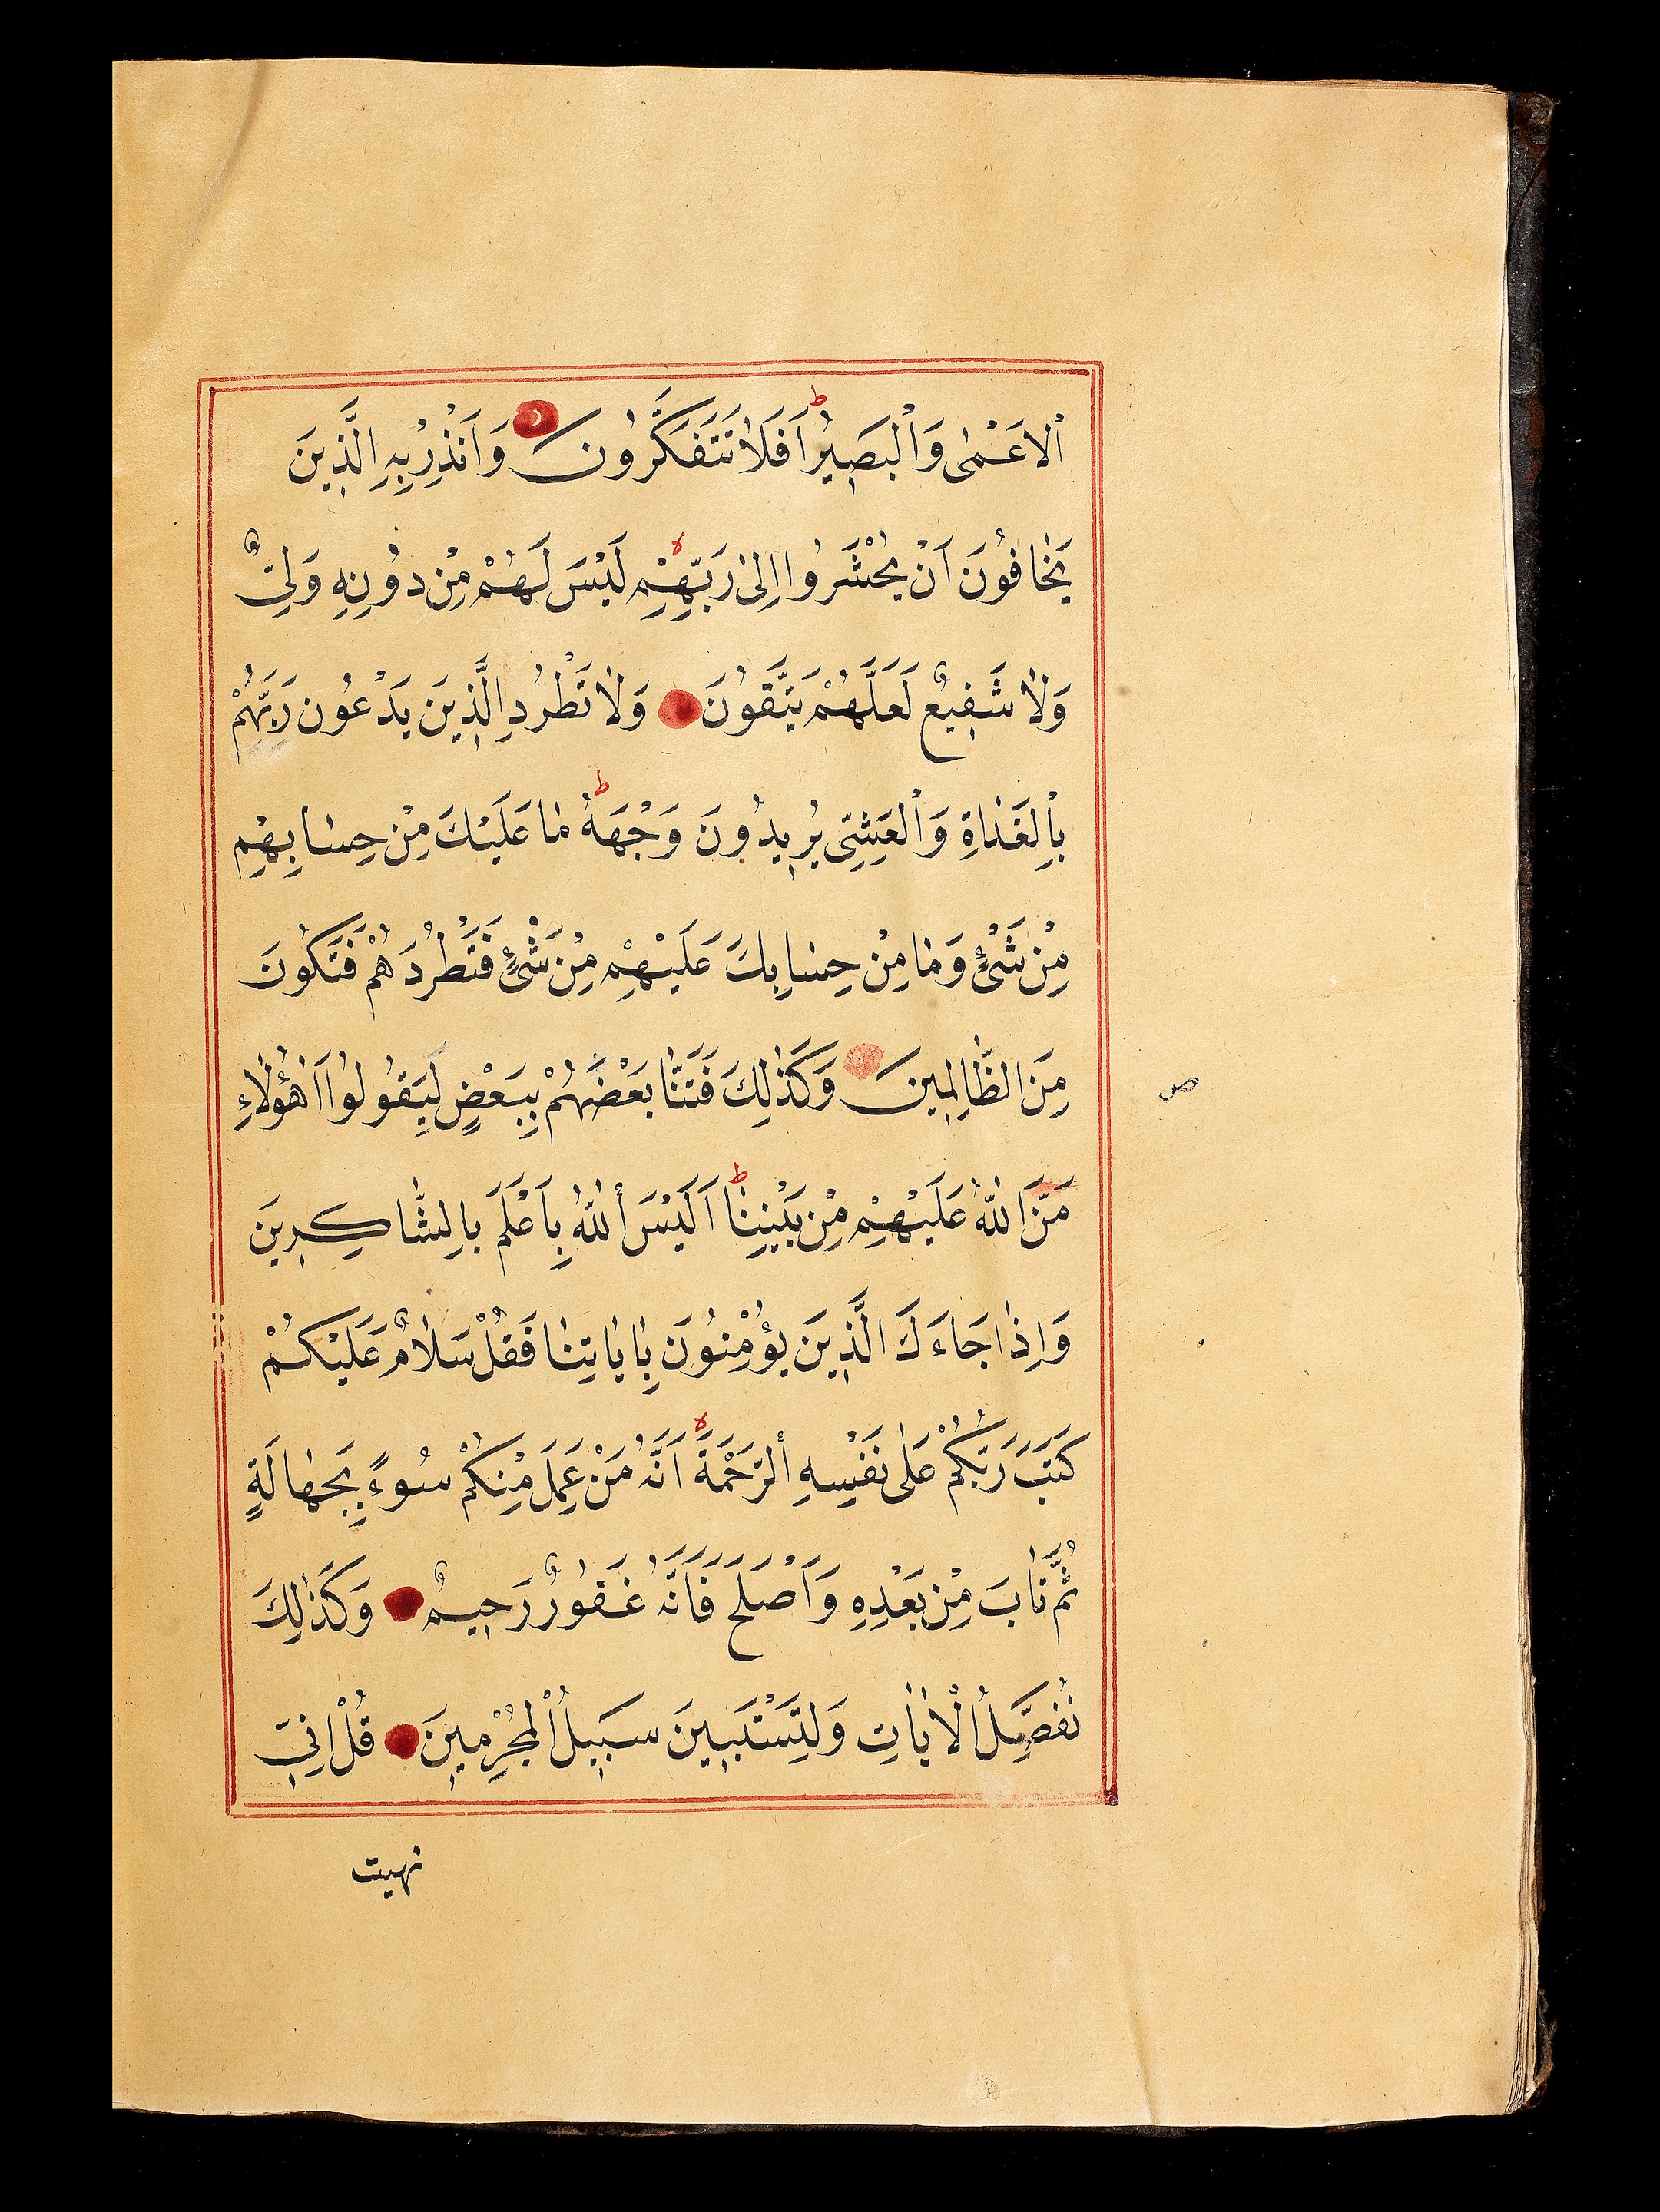 اْلاَعْمٰى وَاْلبَصِيرُ ط اَفَلاٰ تَتَفَكَّرُونَ وَاَنْذِرْ بِهِ الَّذِينَ
يَخٰافُونَ اَنْ يُحْشَرُوا اِلىٰ رَبِّهِمْ لا لَيْسَ لَهُمْ مِنْ دُونِهِ وَلِىٌّ
وَلاٰ شَفِيعٌ لَعَلَّهُمْ يَتَّقُونَ وَلاٰ تَطْرُدِ الَّذِينَ يَدْعُونَ رَبَّهُمْ
بِاْلغَدٰاةِ وَاْلعَشِىِّ يُرِيدُونَ وَجْهَهُ ط مٰا عَلَيْكَ مِنْ حِسٰابِهِمْ
مِنْ شَىْءٍ وَمٰا مِنْ حِسٰابِكَ عَلَيْهِمْ مِنْ شَىْءٍ فَتَطْرُدَهُمْ فَتَكُونَ
مِنَ الظّٰالِمِينَ وَكَذٰلِكَ فَتَنّٰا بَعْضَهُمْ بِبَعْضٍ لِيَقُولُوا اَهٰؤُلاٰءِ
ص
مَنَّ اللّٰهُ عَلَيْهِمْ مِنْ بَيْنِنٰا ط اَلَيْسَ اْللّٰهُ بِاَعْلَمَ بِالشّٰاكِرِينَ
وَاِذٰا جَاءَكَ الَّذِينَ يُؤْمِنُونَ بِاٰيٰاتِنٰا فَقُلْ سَلاٰمٌ عَلَيْكُمْ
كَتَبَ رَبُّكُمْ عَلٰى نَفْسِهِ اْلرَّحْمَةَ لا اَنَّهُ مَنْ عَمِلَ مِنْكُمْ سُوءً بِجَهٰالَةٍ
ثُمَّ تٰابَ مِنْ بَعْدِهِ وَاَصْلَحَ فَاَنَّهُ غَفُورٌ رَحِيمٌ وَكَذٰلِكَ
نُفَصِّلُ اْلاٰيٰاتِ وَلِتَسْتَبِينَ سَبِيلُ اْلمُجْرِمِينَ قُلْ اِنِّى
نهيت